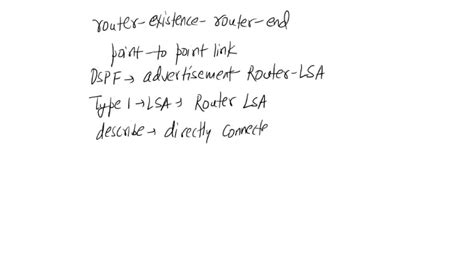 router-existence-router-end
point-to point link
OSPF → advertisement Router-LSA
Type 1 → LSA → Router LSA
describe → directly connecte